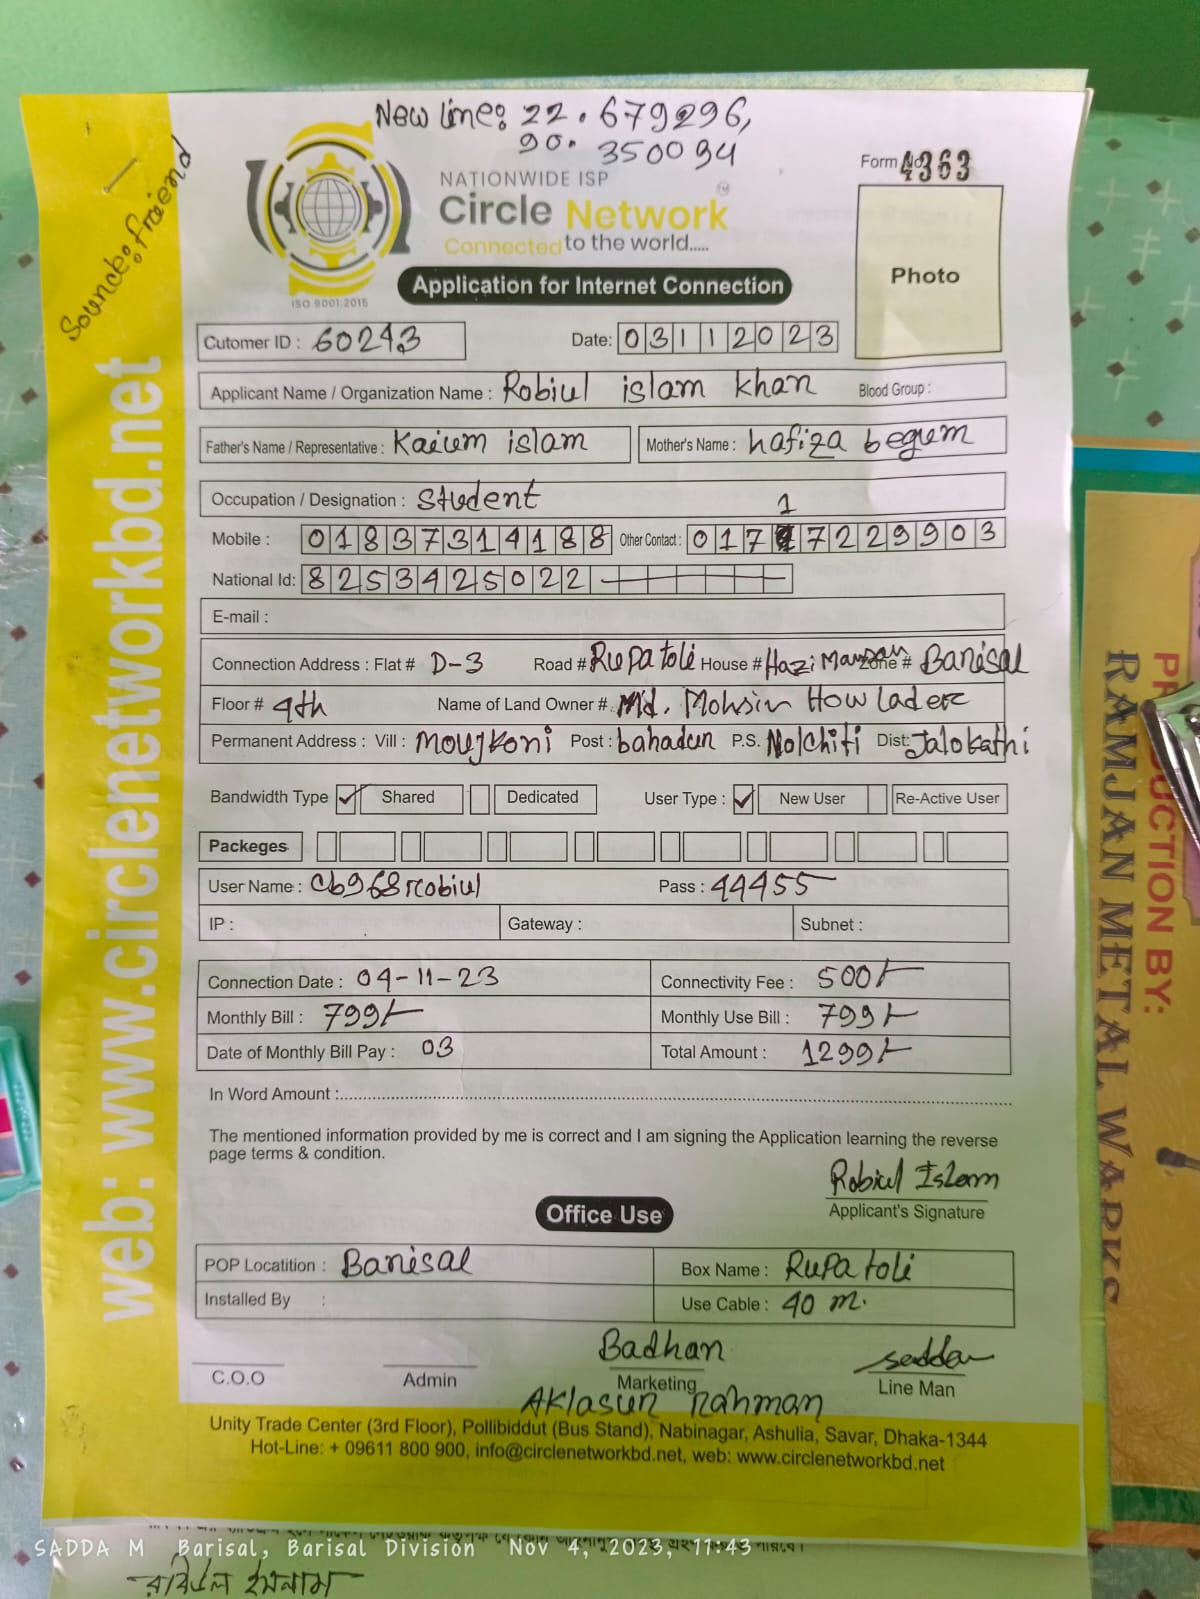 New line: 22.679296,
90.350094
Source: friend
NATIONWIDE ISP
Circle Network
TM
Connected to the world.....
ISO 9001:2015
Form No 4363
Photo
Application for Internet Connection
Cutomer ID : 60243 Date: 03112023
Applicant Name / Organization Name : Robiul islam khan Blood Group :
Father's Name / Representative : Kaium islam Mother's Name : hafiza begum
Occupation / Designation : Student
Mobile : 01837314188 Other Contact : 01717229903
National Id: 8253425022
E-mail :
Connection Address : Flat # D-3 Road # Rupatoli House # Hazi Manzan Zone # Barisal
Floor # 4th Name of Land Owner # Md. Mohsin Howlader
Permanent Address : Vill : mougkoni Post : bahadur P.S. Nolchiti Dist: Jalokathi
Bandwidth Type ✓ Shared Dedicated User Type : ✓ New User Re-Active User
Packeges
User Name : cb968robiul Pass : 44455
IP : Gateway : Subnet :
Connection Date : 04-11-23 Connectivity Fee : 500/-
Monthly Bill : 799/- Monthly Use Bill : 799/-
Date of Monthly Bill Pay : 03 Total Amount : 1299/-
In Word Amount :
The mentioned information provided by me is correct and I am signing the Application learning the reverse
page terms & condition.
Robiul Islam
Applicant's Signature
Office Use
POP Locatition : Barisal Box Name : Rupatoli
Installed By : Use Cable : 40 m.
Badhan Saddam
C.O.O Admin Marketing Line Man
Aklasur Rahman
Unity Trade Center (3rd Floor), Pollibiddut (Bus Stand), Nabinagar, Ashulia, Savar, Dhaka-1344
Hot-Line: + 09611 800 900, info@circlenetworkbd.net, web: www.circlenetworkbd.net
web: www.circlenetworkbd.net
PRODUCTION BY:
RAMJAN METAL WARKS
SADDA M Barisal, Barisal Division Nov 4, 2023, 11:43
রবিউল ইসলাম